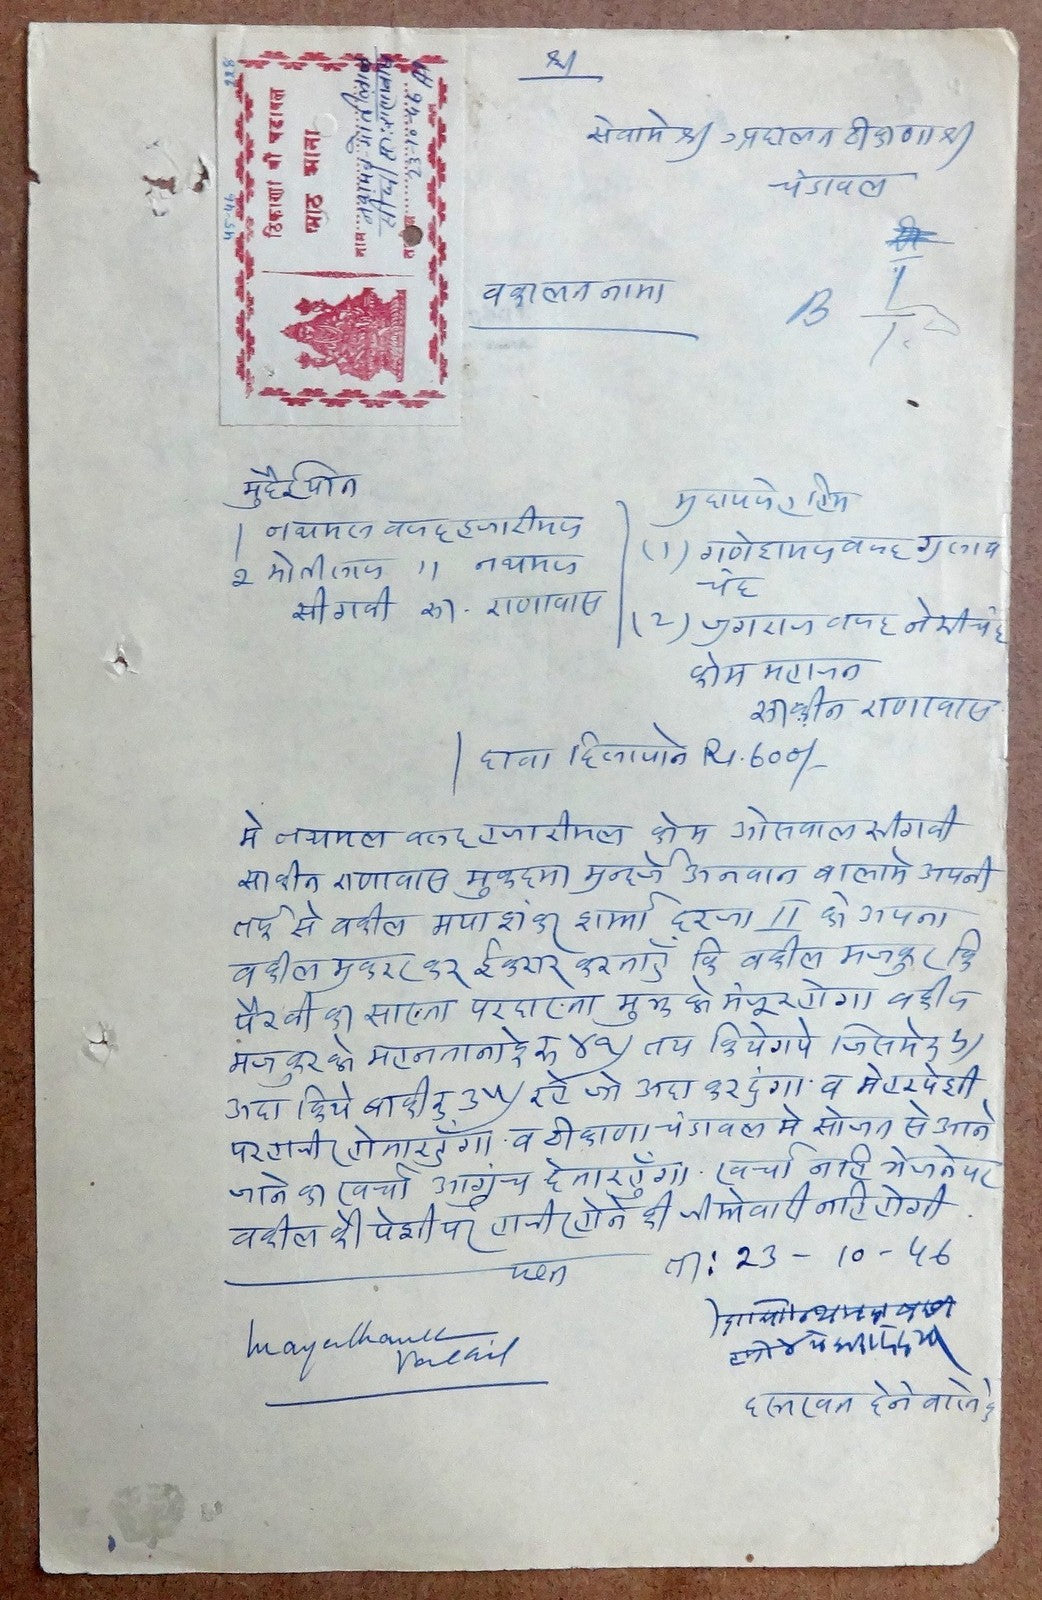 श्री
सेवामे श्री अदालत ठीकाणा श्री
चंडावल
ठिकाणा श्री चंडावल
आठ आना
नाम नथमल मोतीलाल
सीघवी सा. राणावास
23-10-46
45-46
वकालतनामा
B
मुदैईयोन
1 नथमल वलद हजारीमल
२ मोतीलाल 11 नथमल
सीगवी सा. राणावास
मुदायले हिम
(1) गणेशमल वलद गुलाब
चंद
(2) जुगराज वलद नेमीचंद
कोम महाजन
साकीन राणावास
दावा दिलापाने Rs. 600/-
मे नथमल वलद हजारीमल कोम ओसवाल सीगवी
साकीन राणावास मुकदमा मुन्दर्जे ऊनवान बालामे अपनी
तर्फ से वकील मयाशंकर शर्मा दरजा II को अपना
वकील मुकरर कर ईकरार करताहुँ कि वकील मजकुर कि
पैरवी का साख्ता परदाख्ता मुझको मंजूर होगा वकील
मजकुर को महनताना के रु ४१) तय कियेगये जिसमेरु ५)
अदा किये बाकी रु ३५) रहे जो अदा कर दुंगा व मे हरपेशी
पर हाजीर होतारहुँगा व ठीकाणा चंडावल मे सोजत से आने
जाने का खर्चा आगुंच देतारहुँगा खर्चा नहि भेजनेपर
वकील की पेशी पर हाजीर होने की जीम्मेवारी नहि होगी .
ता: 23-10-46
Mayashanker
Vakil
दसखत देने वाले के